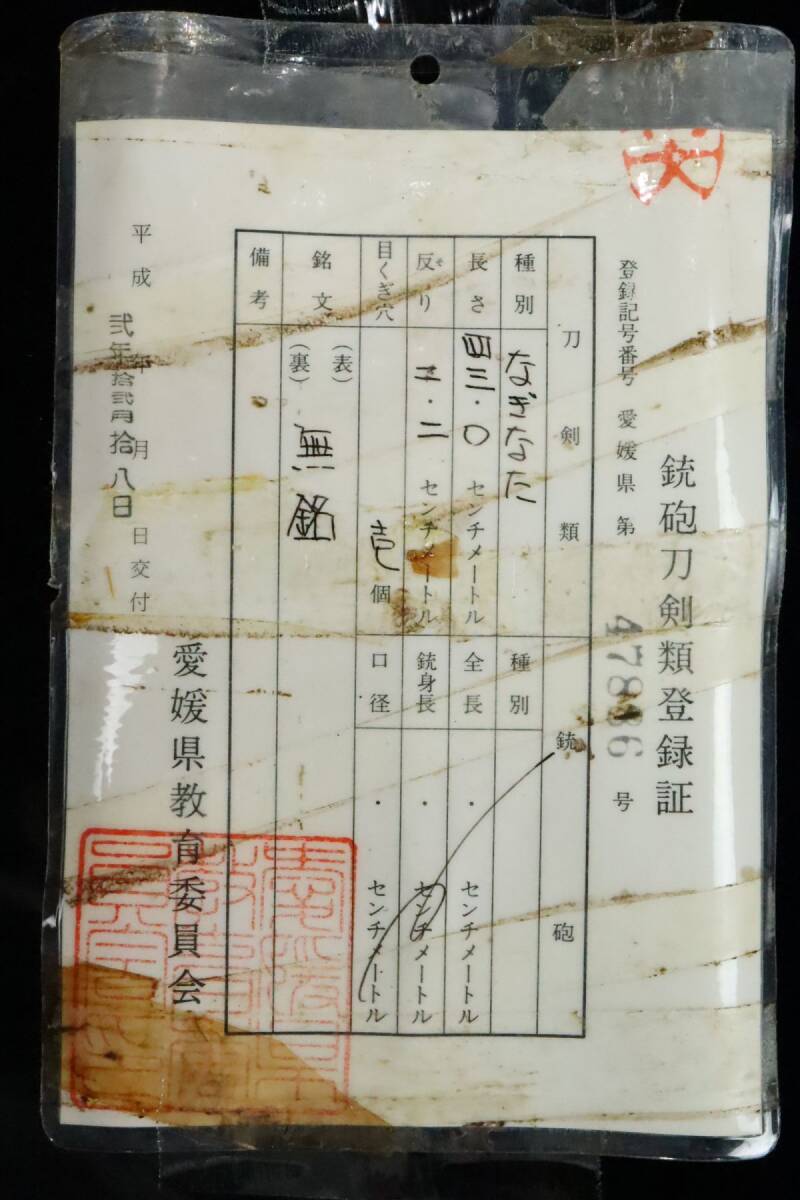 銃砲刀剣類登録証
登録記号番号 愛媛県 第 47886 号
刀剣類
種別 なぎなた
長さ 四三・〇 センチメートル
反り 二・二 センチメートル
目くぎ穴 壱個
銘文 (表)
(裏) 無銘
備考
銃砲
種別
全長 ・ センチメートル
銃身長 ・ センチメートル
口径 ・ センチメートル
平成 弐年拾弐月拾八日
年 月 日交付
愛媛県教育委員会